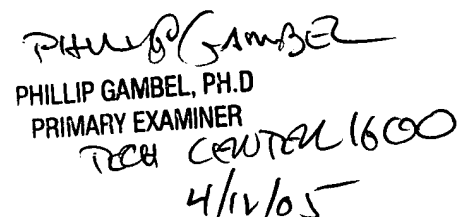 PHILLIP GAMBEL
PHILLIP GAMBEL, PH.D
PRIMARY EXAMINER
TECH CENTER 1600
4/12/05